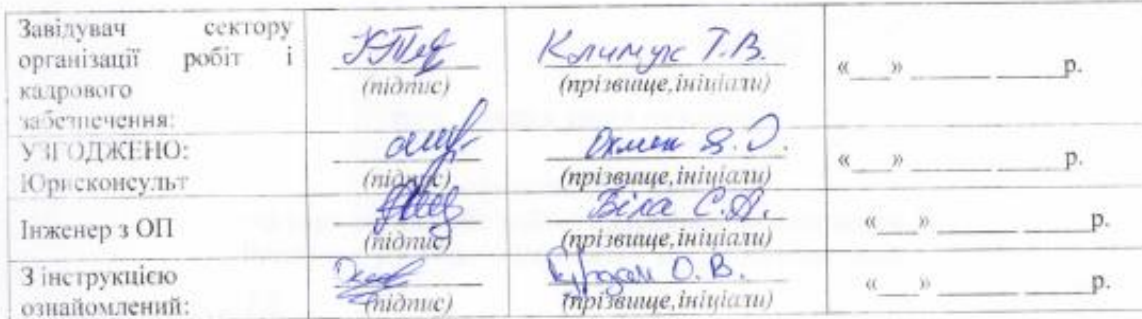 Завідувач сектору
організації робіт і
кадрового
забезпечення:
Климук Т.В.
(підпис) (прізвище,ініціали) «___» ______ ____р.
УЗГОДЖЕНО:
Юрисконсульт
(підпис) (прізвище,ініціали) «___» ______ ____р.
Інженер з ОП
Біла С.А.
(підпис) (прізвище,ініціали) «___» ______ ____р.
З інструкцією
ознайомлений:
О.В.
(підпис) (прізвище,ініціали) «___» ______ ____р.